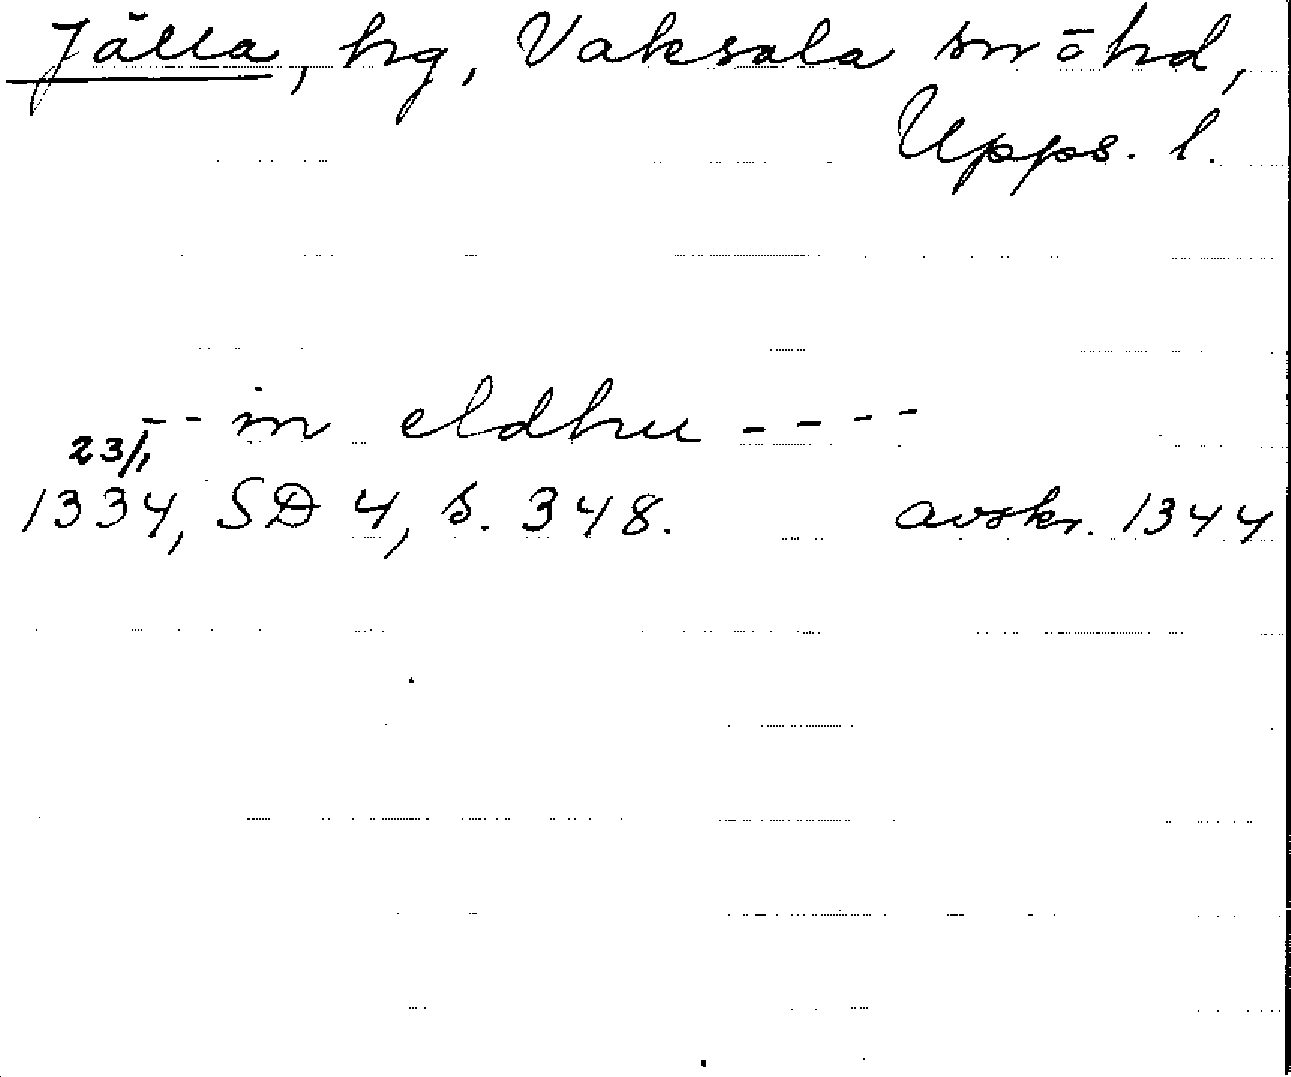 Jälla, hg, Vaksala sn o hd,
Upps. l.
- - in eldhu - - - -
23/1
1334, SD 4, s. 348. avskr. 1344